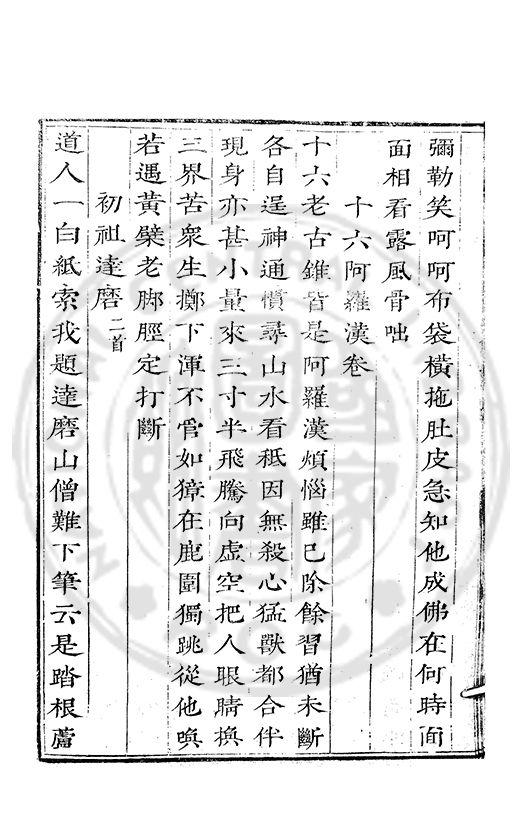 彌勒笑呵呵布袋橫拖肚皮急知他成佛在何時面
面相看露風骨咄
十六阿羅漢卷
十六老古錐皆是阿羅漢煩惱雖已除餘習猶未斷
各自逞神通慣尋山水看秪因無殺心猛獸都合伴
現身亦甚小量來三寸半飛騰向虛空把人眼睛換
三界苦衆生擲下渾不管如獐在鹿圍獨跳從他喚
若遇黃檗老脚脛定打斷
初祖達磨二首
道人一白紙索我題達磨山僧難下筆云是踏根蘆